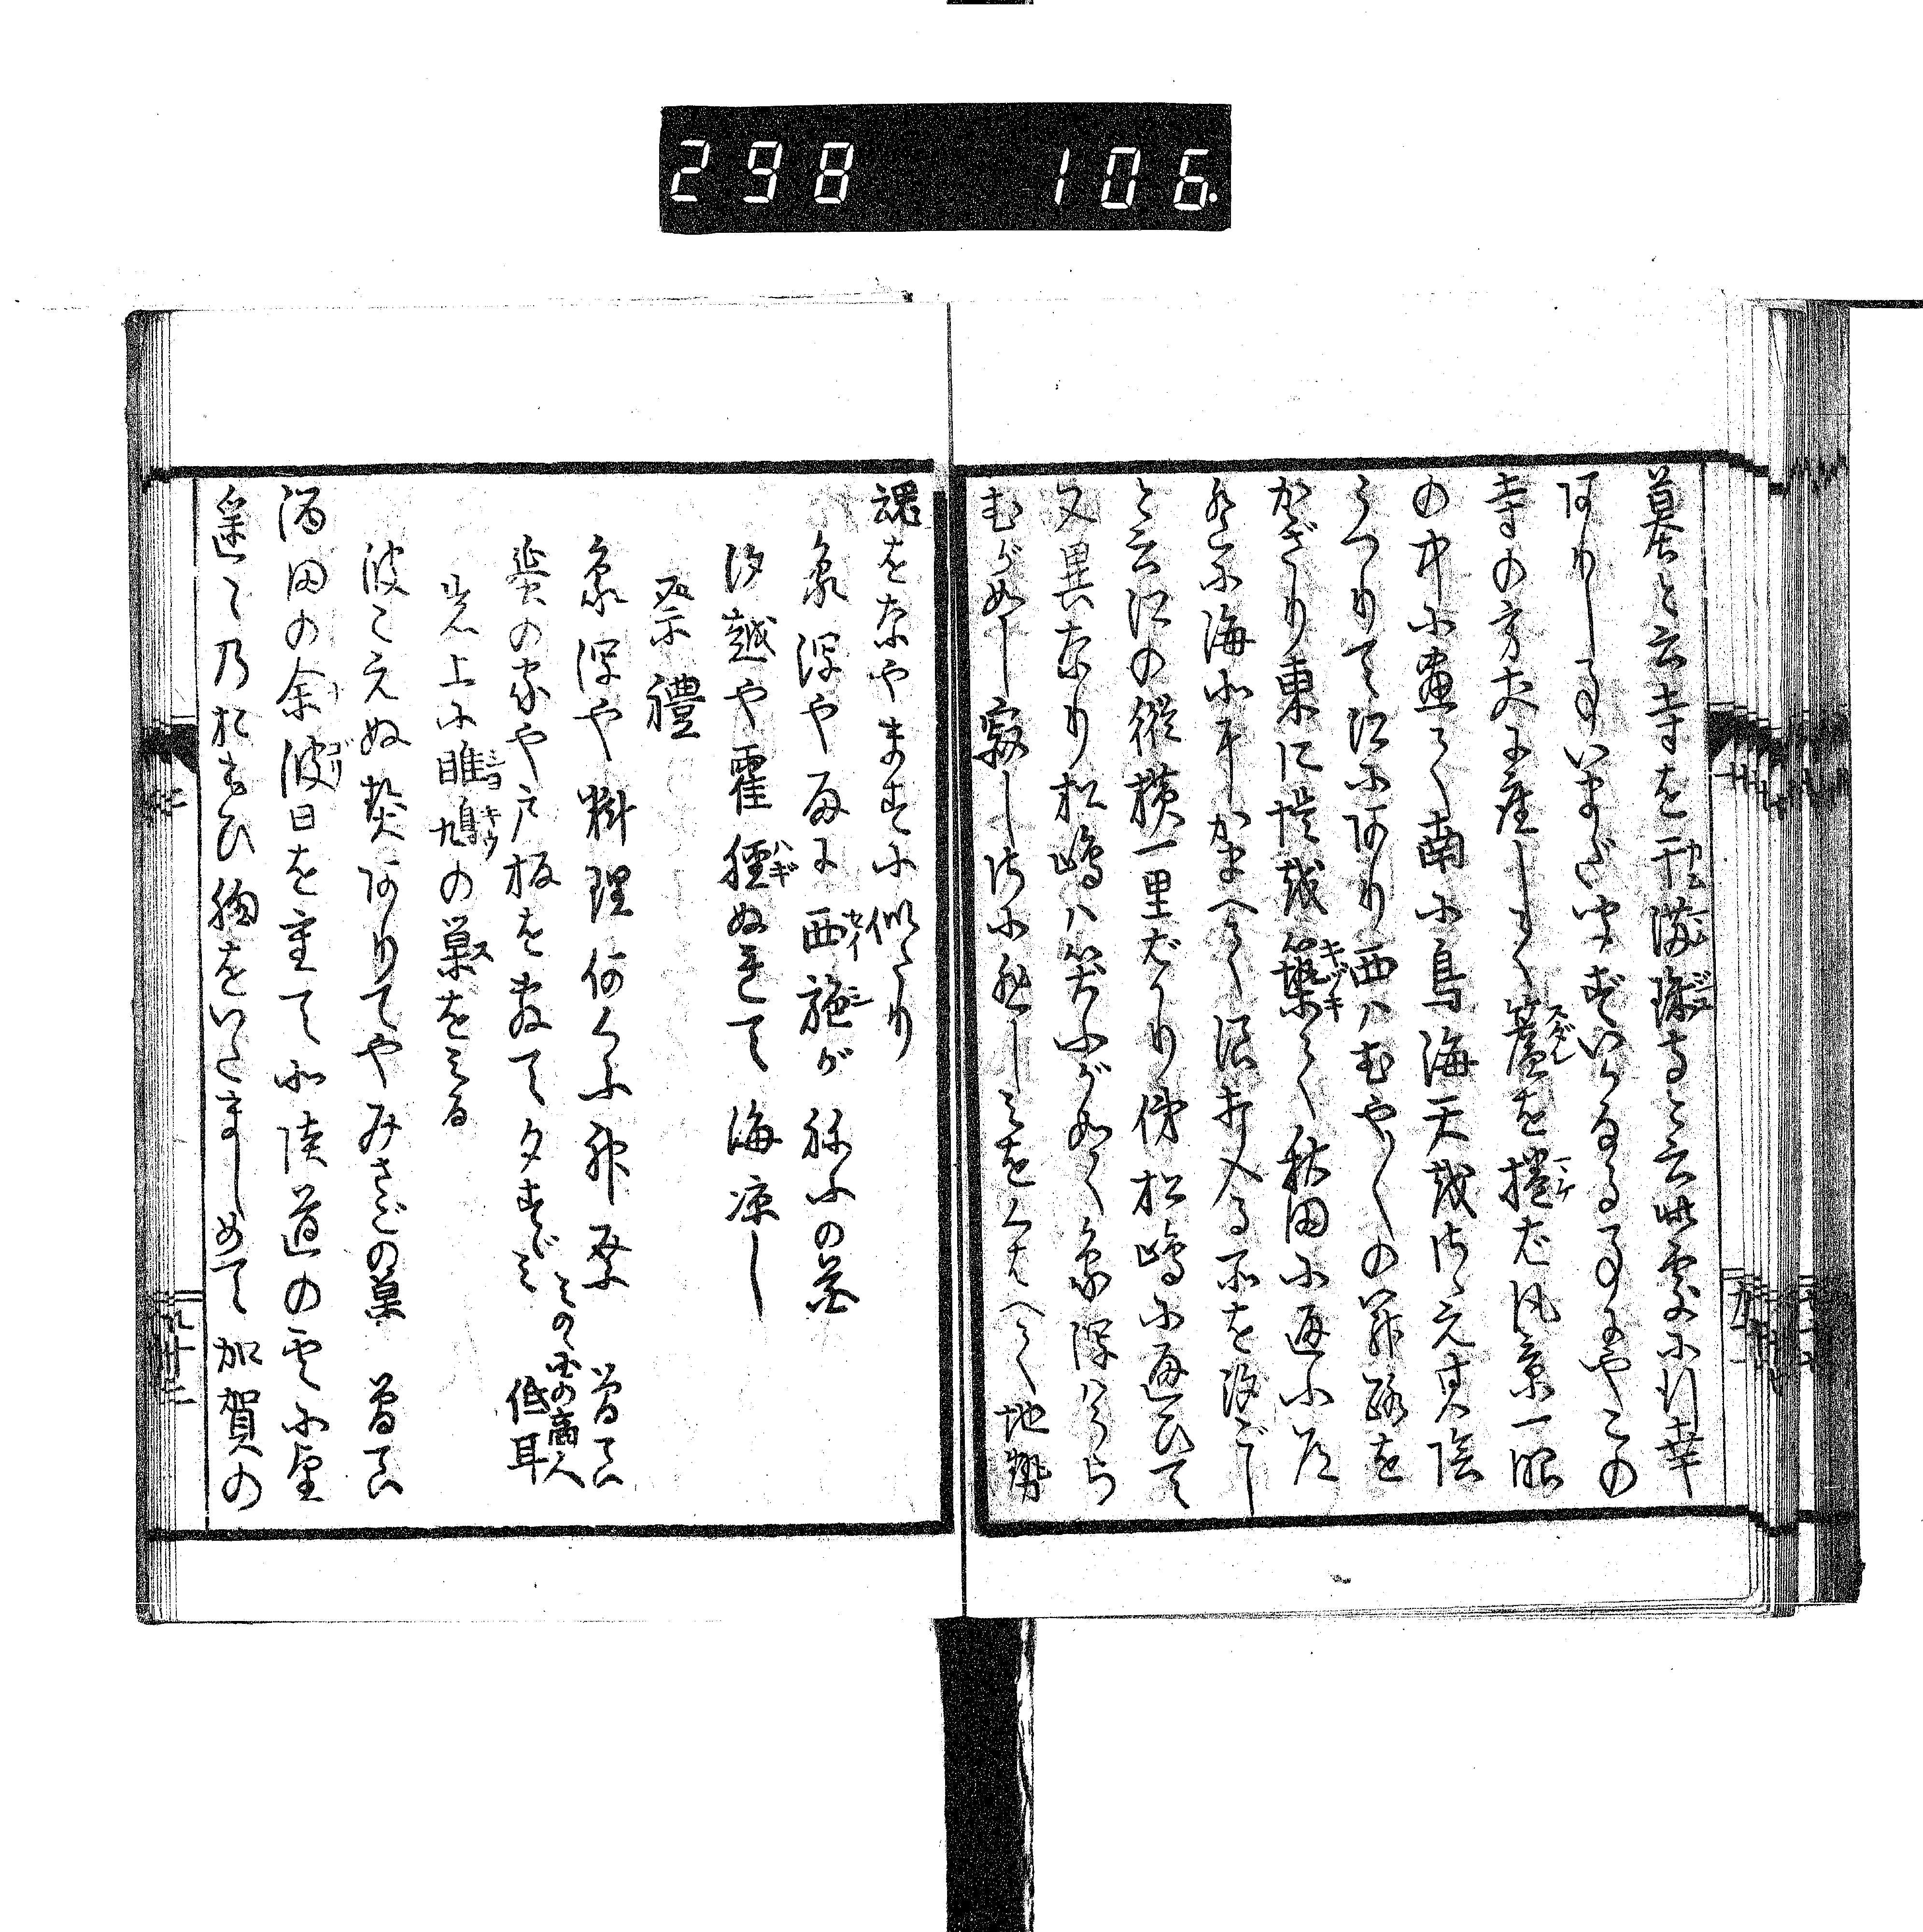 298 106.
墓と云寺を干満珠寺と云此處に行幸
ありし事いまだ聞ずいかなる事にやこの
寺の方丈に座して簾を捲ば風景一眼
の中に盡て南に鳥海天をさゝえ其陰
うつりて江にあり西はむや〳〵の関路を
かぎり東に堤を築て秋田に通ふ道
遥に海北にかまへて浪打入る所を汐ごし
と云江の縦横一里ばかり俤松嶋に通ひて
又異なり松嶋は笑ふが如く象潟はうら
むが如し寂しさに悲しみをくはへて地勢
魂をなやますに似たり
象潟や雨に西施がねぶの花
汐越や霍脛ぬれて海凉し
祭禮
象潟や料理何くふ神祭 曽良
蜑の家や戸板を敷て夕すゞみ みのゝ国の商人 低耳
岩上に雎鳩の巣をみる
波こえぬ契ありてやみさごの巣 曽良
酒田の余波日を重て北陸道の雲に望
遥々のおもひ胸をいたましめて加賀の